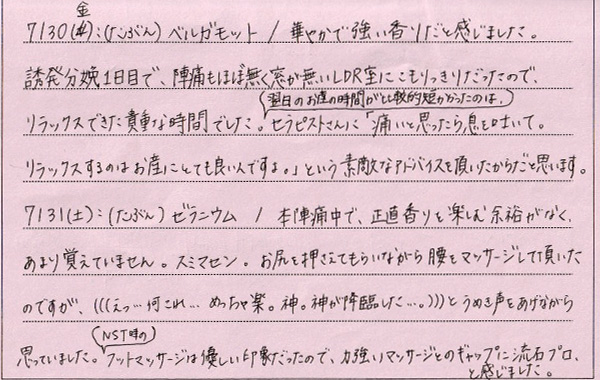 金
7/30(木):(たぶん)ベルガモット / 華やかで強い香りだと感じました。
誘発分娩1日目で、陣痛もほぼ無く窓が無いLDR室にこもりっきりだったので、
翌日のお産の時間が比較的短かかったのは、
リラックスできた貴重な時間でした。セラピストさんに「痛いと思ったら息を吐いて。
リラックスするのはお産にとても良いんですよ。」という素敵なアドバイスを頂いたからだと思います。
7/31(土):(たぶん)ゼラニウム / 本陣痛中で、正直香りを楽しむ余裕がなく、
あまり覚えていません。スミマセン。お尻を押さえてもらいながら腰をマッサージして頂いた
のですが、(((えっ…何これ…めっちゃ楽。神。神が降臨した…。)))とうめき声をあげながら
NST時の
思っていました。フットマッサージは優しい印象だったので、力強いマッサージとのギャップに流石プロ、
と感じました。